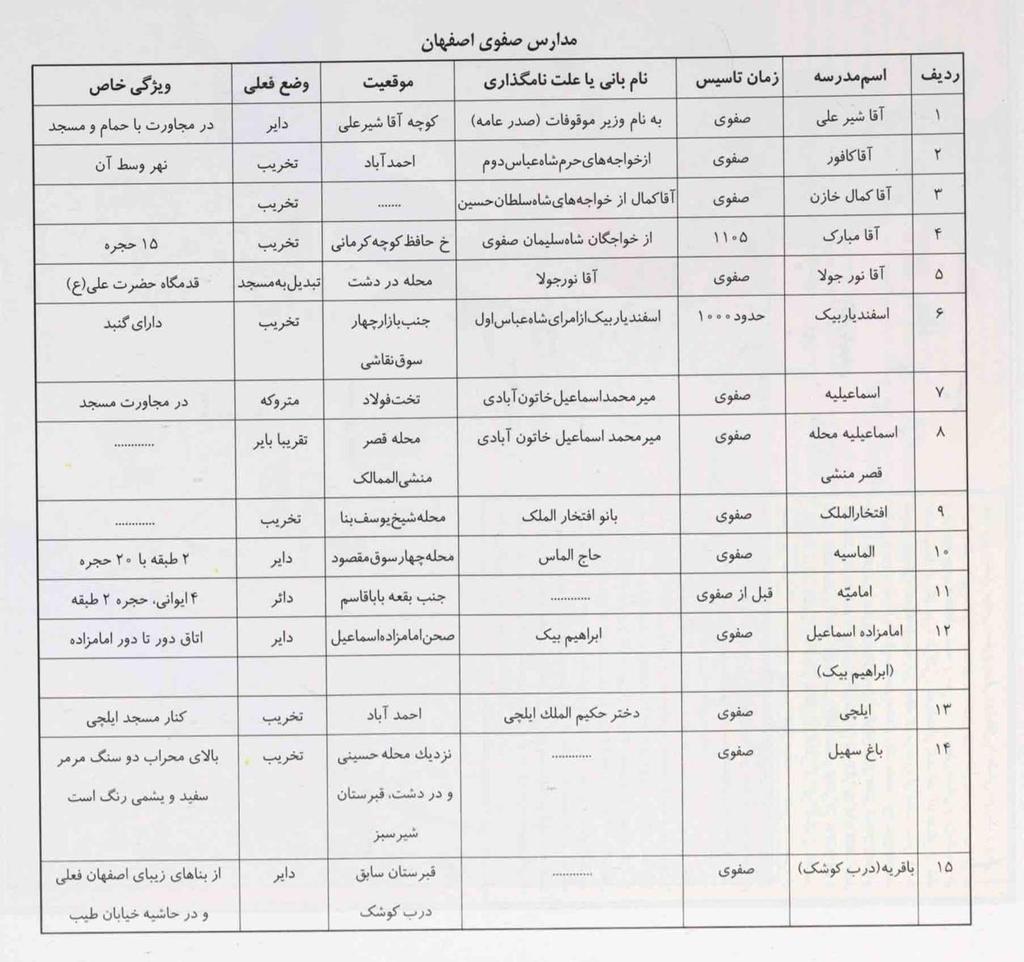 مدارس صفوی اصفهان
ردیف اسم‌مدرسه زمان تاسیس نام بانی یا علت نامگذاری موقعیت وضع فعلی ویژگی خاص
۱ آقا شیر علی صفوی به نام وزیر موقوفات (صدر عامه) کوچه آقا شیرعلی دایر در مجاورت با حمام و مسجد
۲ آقاکافور صفوی ازخواجه‌های‌حرم‌شاه‌عباس‌دوم احمدآباد تخریب نهر وسط آن
۳ آقا کمال خازن صفوی آقاکمال از خواجه‌های‌شاه‌سلطان‌حسین ....... تخریب
۴ آقا مبارک ۱۱۰۵ از خواجگان شاه‌سلیمان صفوی خ حافظ کوچه‌کرمانی تخریب ۱۵ حجره
۵ آقا نور جولا صفوی آقا نورجولا محله در دشت تبدیل‌به‌مسجد قدمگاه حضرت علی(ع)
۶ اسفندیاربیک حدود ۱۰۰۰ اسفندیاربیک‌ازامرای‌شاه‌عباس‌اول جنب‌بازارچهار تخریب دارای گنبد
سوق‌نقاشی
۷ اسماعیلیه صفوی میرمحمداسماعیل‌خاتون‌آبادی تخت‌فولاد متروکه در مجاورت مسجد
۸ اسماعیلیه محله صفوی میرمحمد اسماعیل خاتون آبادی محله قصر تقریبا بایر ............
قصر منشی منشی‌الممالک
۹ افتخارالملک صفوی بانو افتخار الملک محله‌شیخ‌یوسف‌بنا تخریب ............
۱۰ الماسیه صفوی حاج الماس محله‌چهارسوق‌مقصود دایر ۲ طبقه با ۲۰ حجره
۱۱ امامیّه قبل از صفوی ............ جنب بقعه باباقاسم دائر ۴ ایوانی، حجره ۲ طبقه
۱۲ امامزاده اسماعیل صفوی ابراهیم بیک صحن‌امامزاده‌اسماعیل دایر اتاق دور تا دور امامزاده
(ابراهیم بیک)
۱۳ ایلچی صفوی دختر حکیم الملك ایلچی احمد آباد تخریب کنار مسجد ایلچی
۱۴ باغ سهیل صفوی ............ نزدیك محله حسینی تخریب بالای محراب دو سنگ مرمر
و در دشت، قبرستان سفید و یشمی رنگ است
شیرسبز
۱۵ باقریه(درب کوشک) صفوی ............ قبرستان سابق دایر از بناهای زیبای اصفهان فعلی
درب کوشک و در حاشیه خیابان طیب